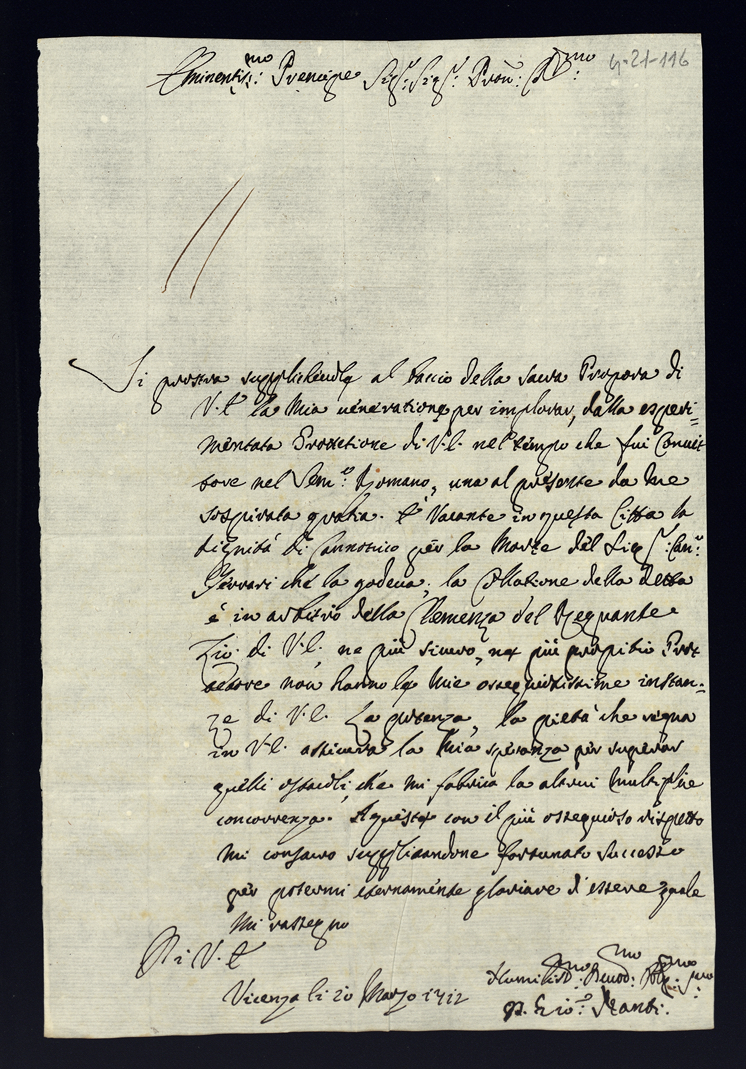 Eminentis:mo Prencipe Sig:r Sig:r Pron: 4-21-116
Si prostra supplichevole al baccio della sacra Porpora di
V. E. la mia veneratione per implorar, dalla esperi=
mentata Protetione di V. E. nel tempo che fui Convit
tore nel Sem:o Romano, una al presente da me
sospirata gratia. E' Vacante in questa Citta la
dignità di Cannonico per la Morte del Sig:r Can:o
Ferrari che la godeva; la Collatione della detta
è in arbitrio della Clemenza del Regnante
Zio di V. E. ne più sicuro, ne più propitio Prot
tettore non hanno le mie ossequiosissime instan=
ze di V. E. La potenza, la pietà che regna
in V. E. assicura la Mia speranza per superar
quelli ostacoli, che mi fabrica la altrui multiplice
concorrenza. A queste con il più ossequioso rispetto
mi consacro supplicandone fortunato successo
per potermi eternamente gloriare d'essere quale
mi rassegno
Di V. E.
Vicenza li 20 Marzo 1712 Humiliss:mo Devot:mo
Gio: